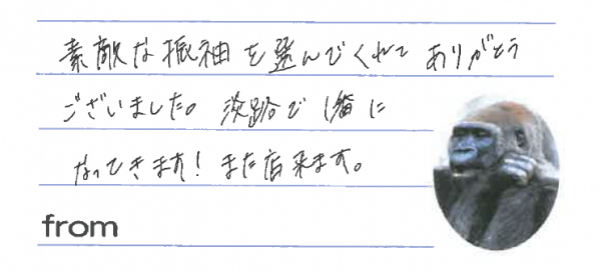 素敵な振袖を選んでくれて ありがとう
ございました。淡路で1番に
なってきます！また店来ます。
from